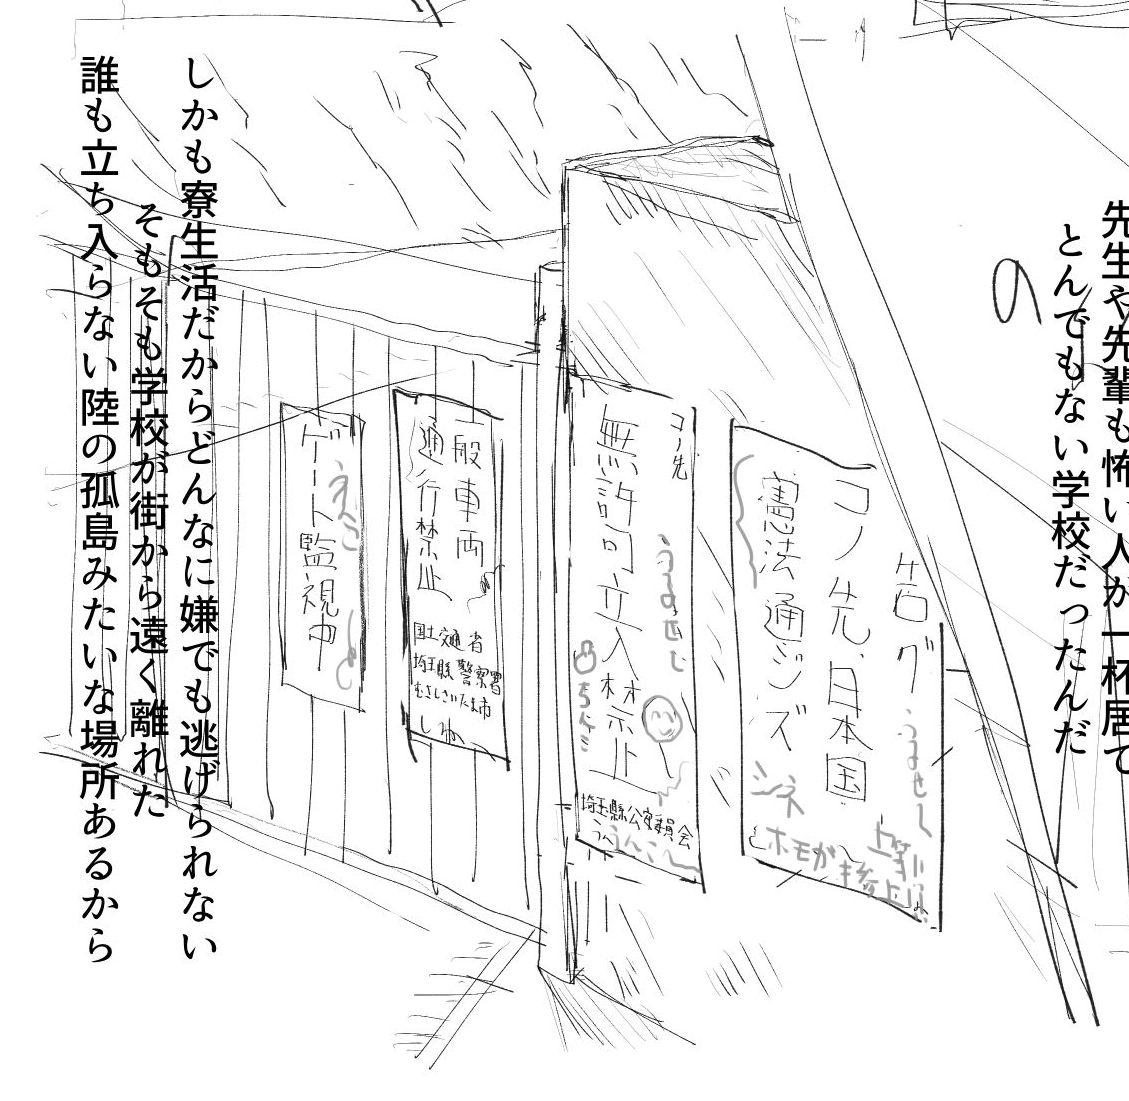 先生や先輩も怖い人が一杯居て
とんでもない学校だったんだ
の
告グ
コノ先、日本国
憲法通ジズ
うるせー
上等だ
シネ
コノ先
無許可立入禁止
埼玉縣公安委員会
うるせえ
うんこ
一般車両
通行禁止
国土交通省
埼玉縣警察署
むさしさいたま市
ゲート監視中
しかも寮生活だからどんなに嫌でも逃げられない
そもそも学校が街から遠く離れた
誰も立ち入らない陸の孤島みたいな場所あるから